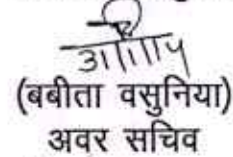 (बबीता वसुनिया)
अवर सचिव